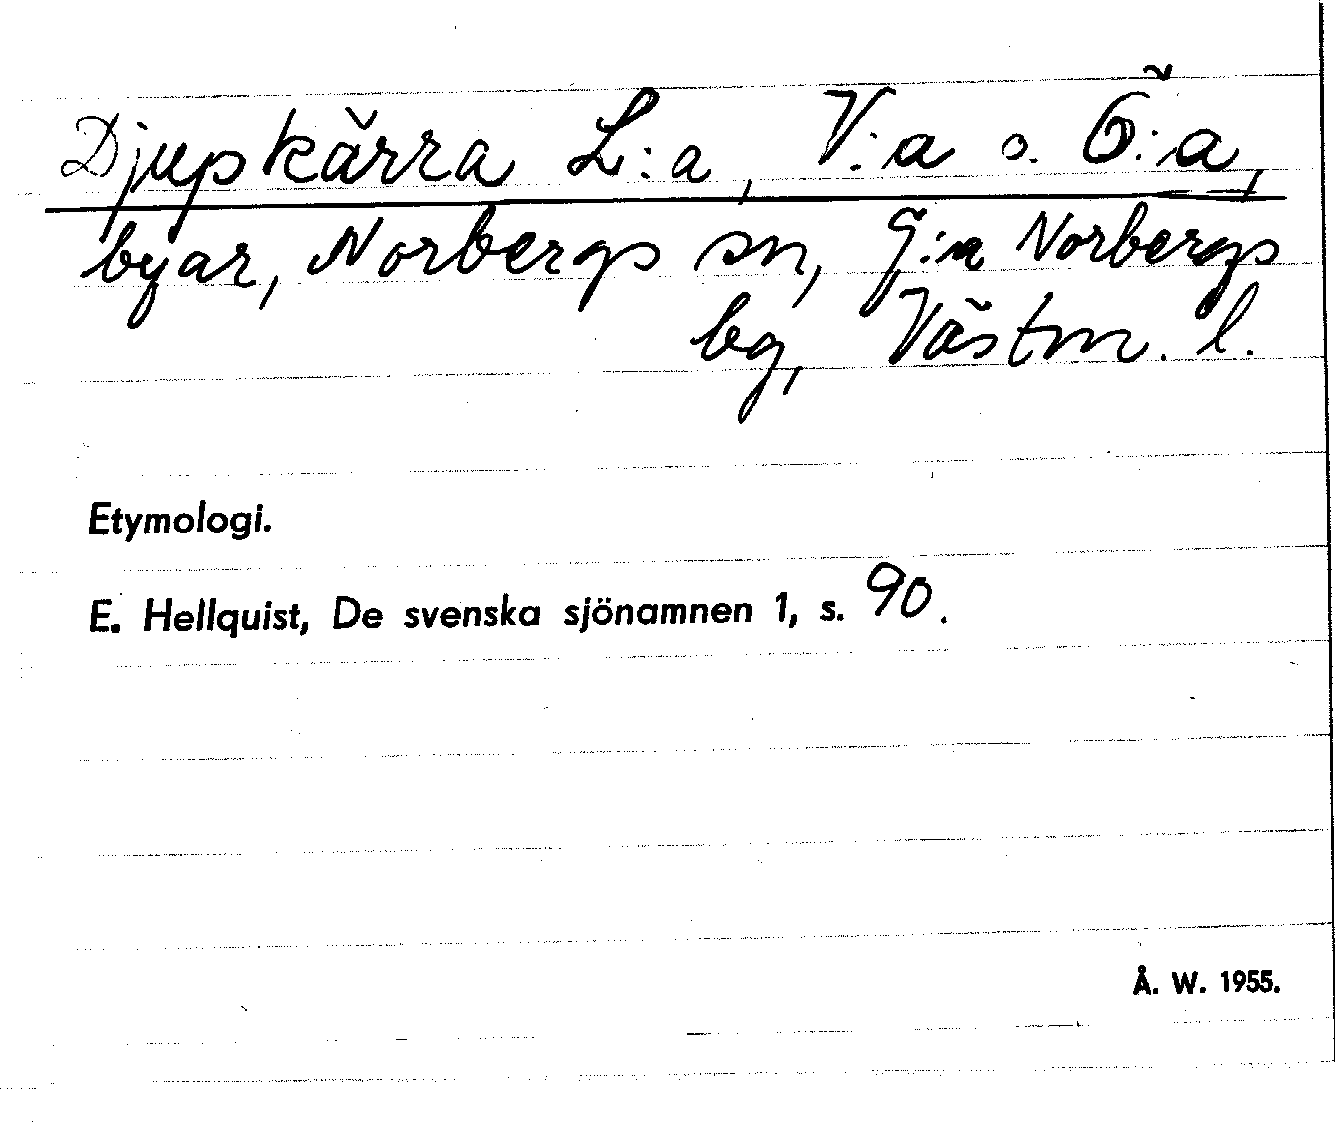 Djupkärra L:a, V:a o. Ö:a,
byar, Norbergs sn, G:a Norbergs
bg, Västm. l.
Etymologi.
E. Hellquist, De svenska sjönamnen 1, s. 90.
Å. W. 1955.